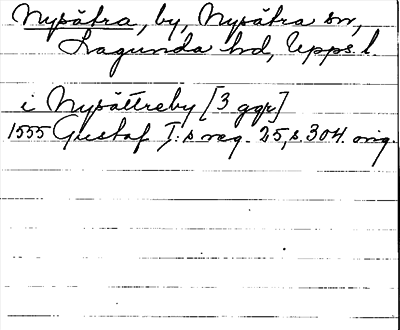 Nysätra, by, Nysätra sn,
Lagunda hd, Upps l.
i Nysättreby [3 ggr]
1555 Gustaf I:s reg. 25, s. 304. orig.